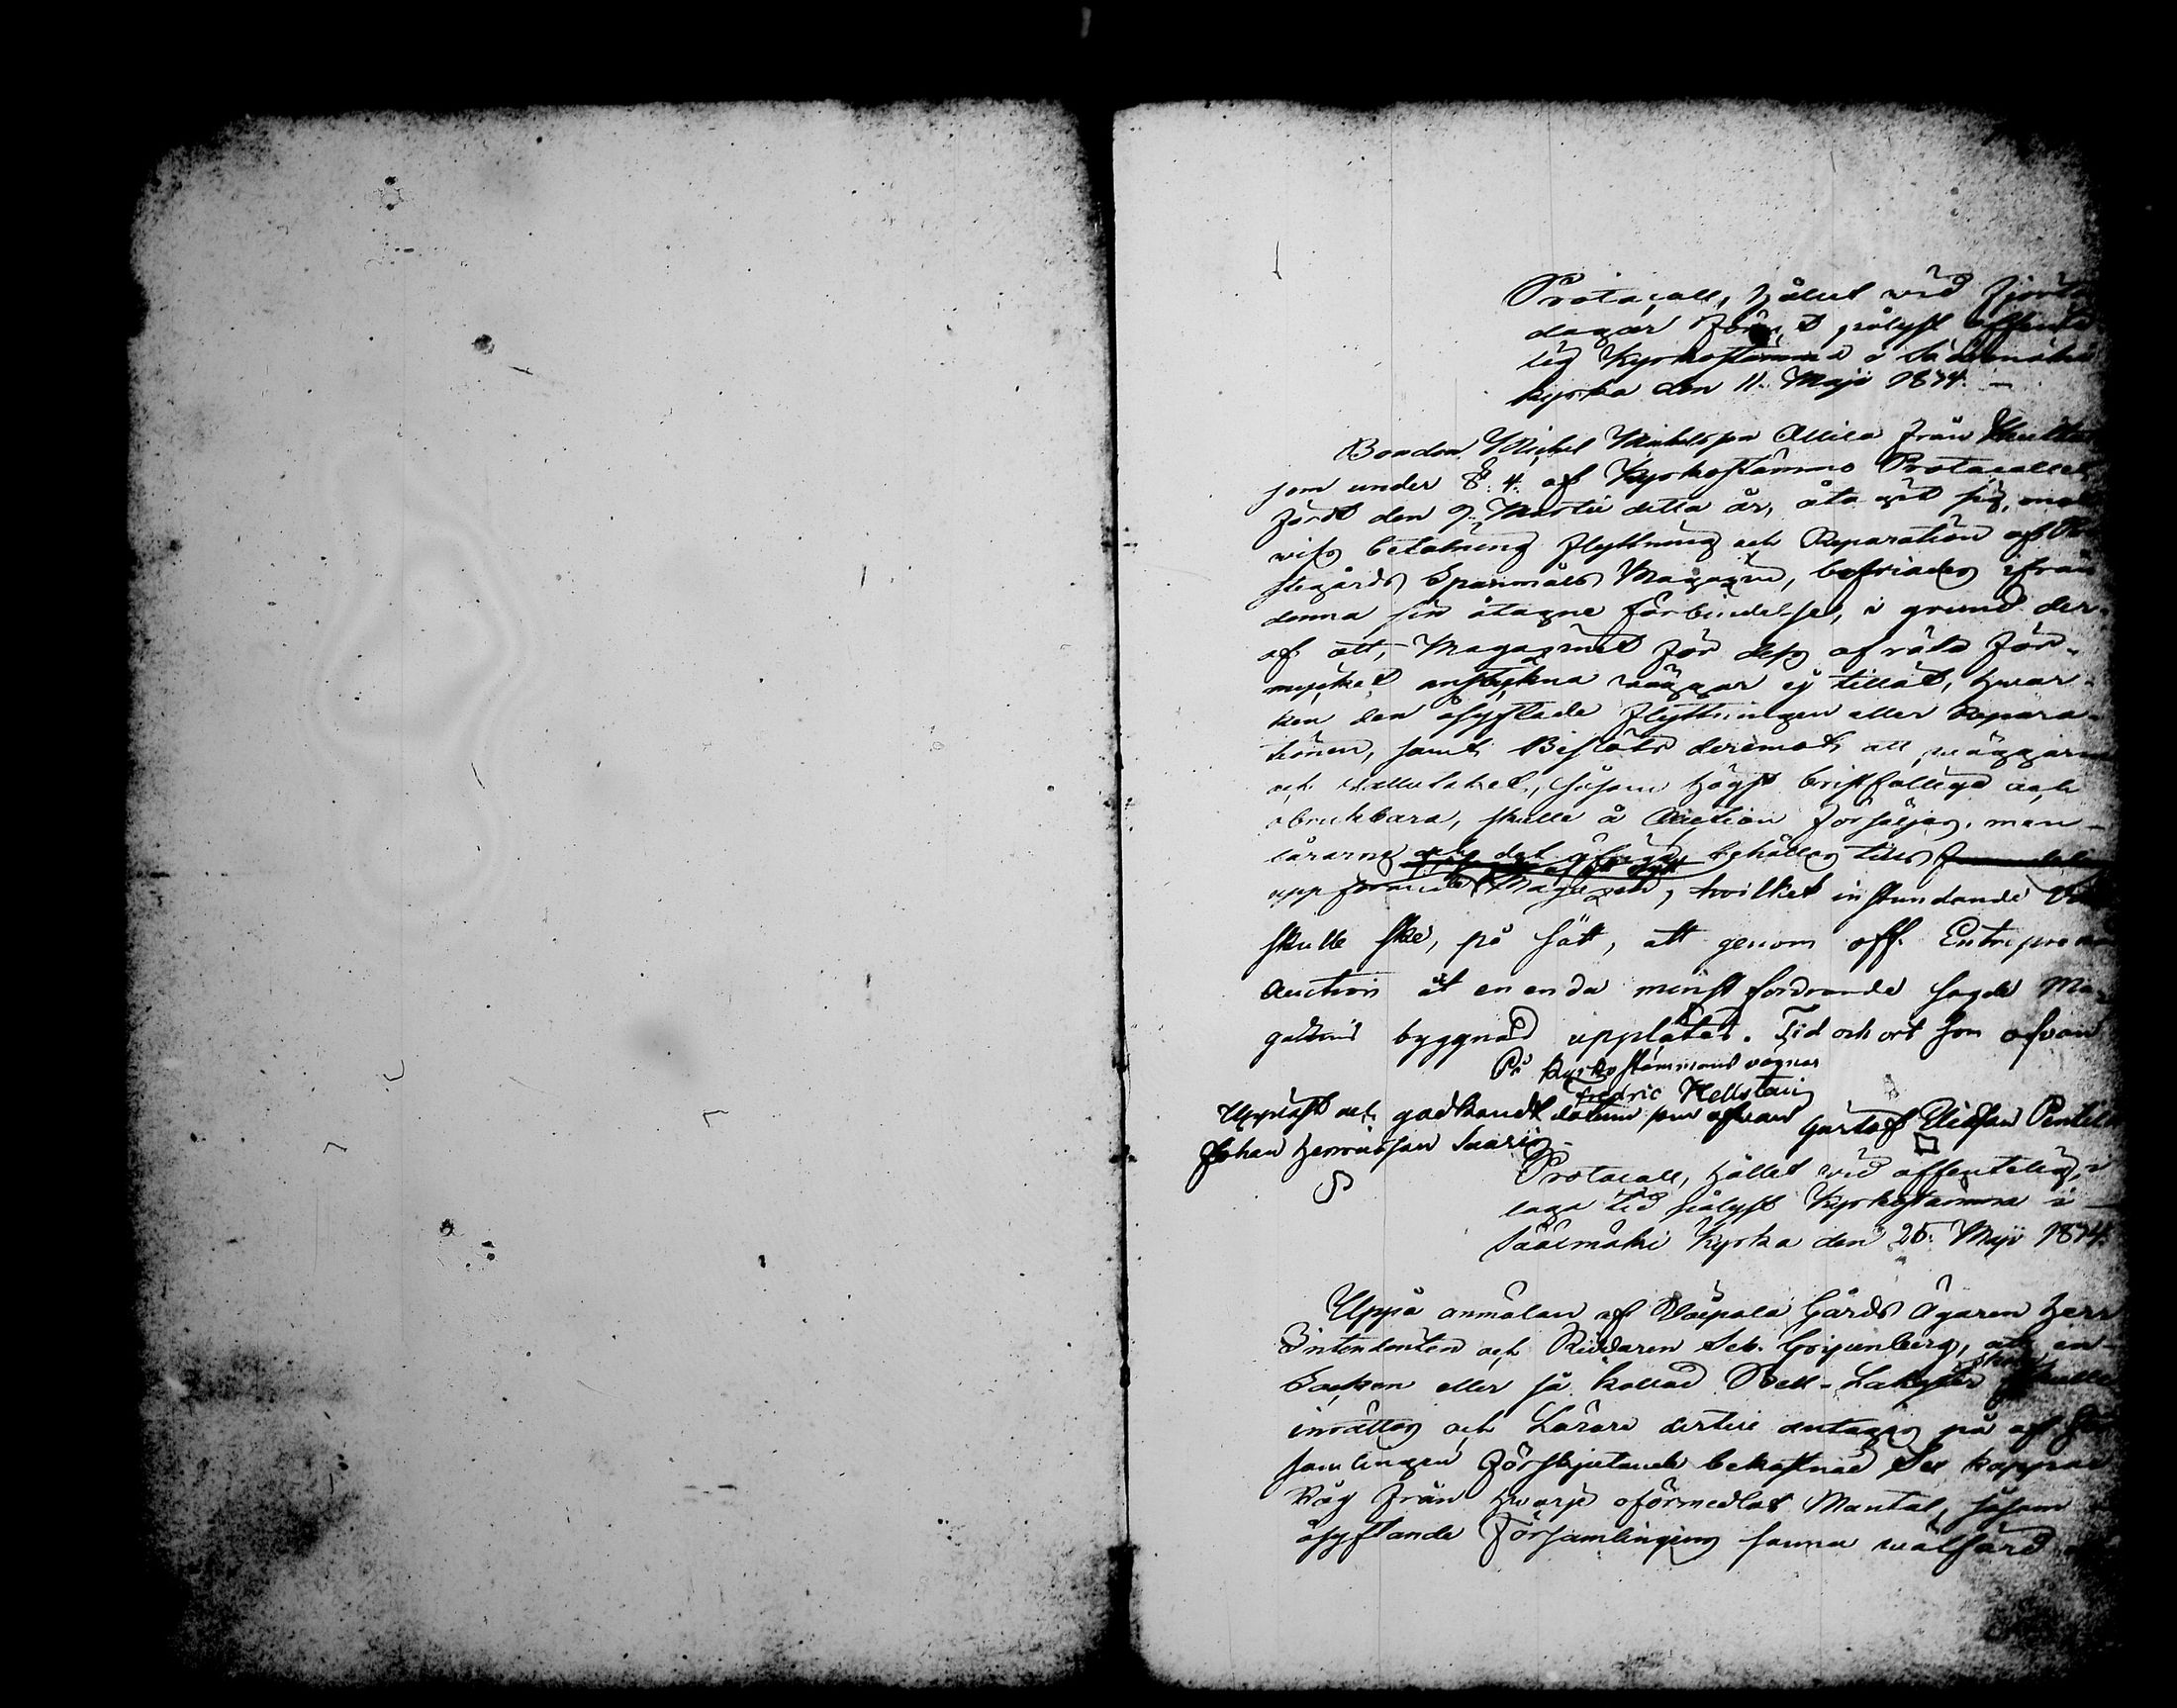 Protocoll, hållet wid fjorton
dagar förut pålyst offent-
lig Kyrkostämma i Sääxmäki
kyrka den 11. Maji 1874. –
Bonden Michel Michelsson Allila från
som under §. 4. af Kyrkostämmo Protocollet
fördt den 9. Martii detta år, åtagit sig, mot
wiss betalning flyttning och Reparation af
stegårds Spanmåls Magazin, befriades ifrån
denna sin åtagne förbindelse, i grund der-
af att, Magazinet för dess af röta för-
mycket anstukna väggar ej tillåt, hwar-
ken den åsyftade flyttningen eller Repara-
tionen, samt Beslöts deremot, att wäggarne
och, såsom högst bristfälliga och
obrukbara, skulle å Auction försäljas, men
lårarne och det öfriga behålles till
uppförande Magazin, hvilket instundande
skulle ske, på sätt, att genom off. Entreprenad
Auction åt en enda minst fordrande sagde Ma-
gatzins byggnad upplåtes. Tid och ort som ofvan
På Kyrkostämmans vägnar
Fredric Hellstén
Uppläst och godkändt datum som ofvan Gustaf Eliasson Pentilä
Johan Henricsson Saaris
Protocoll, hållet wid offentelig, i
laga tid pålyst Kyrkostämma i
Sääxmäki Kyrka den 25. Maji 1874.
Uppå anmälan af Voipala Gårds Ägaren Herr
Intendenten och Riddaren Seb. Gripenberg, att en
Sockne eller så kallad skulle
inrättas och Lärare dertill antagas på af För-
samlingen förskjutande bekostnad Sex kappar
Råg från hwarje oförmedlat Mantal, såsom
åsyftande Församlingens sanna wälfärd